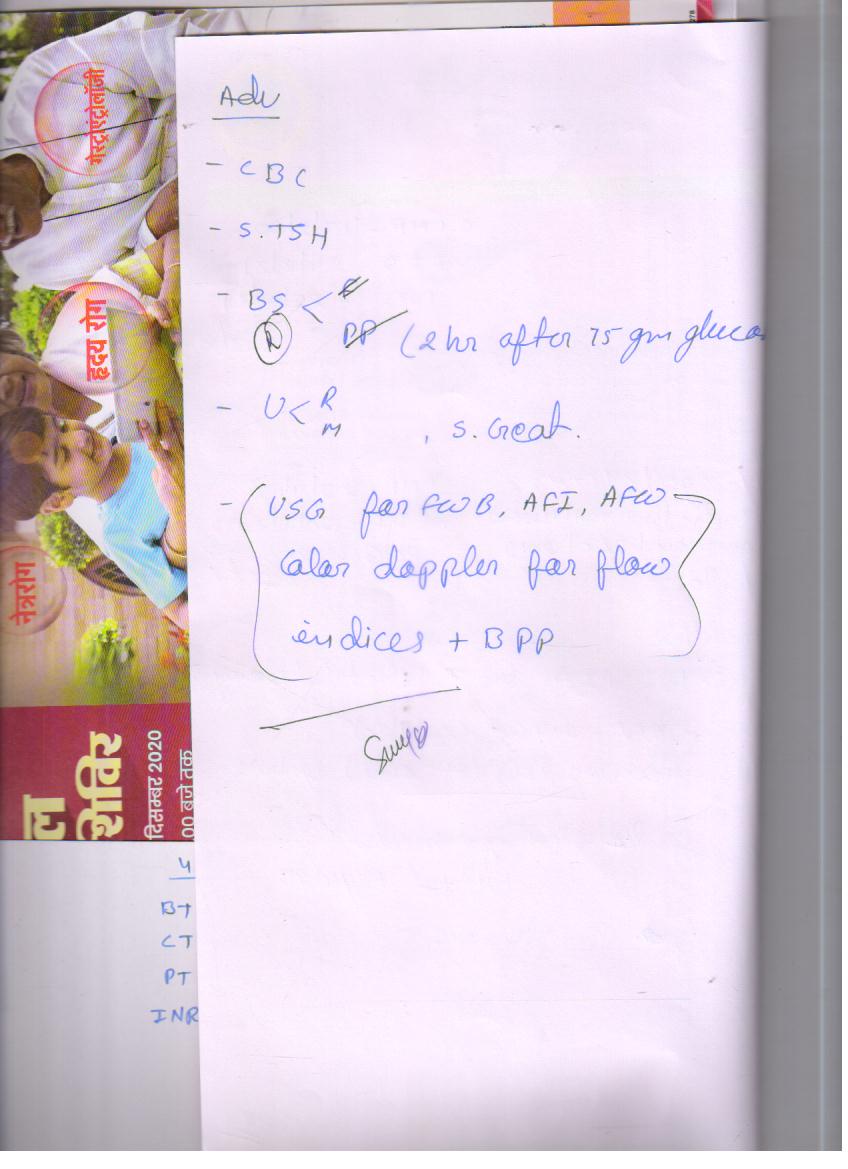 Adv
- CBC
- S.TSH
- BS < F
(R) PP (2 hr after 75 gm gluco
- U < R
M , S. Creat.
- USG for FWB, AFI, AFW
Color doppler for flow
indices + BPP
गेस्ट्राएंट्रोलॉजी
हृदय रोग
नेत्ररोग
ल
शिविर
दिसम्बर 2020
00 बजे तक
BT
CT
PT
INR